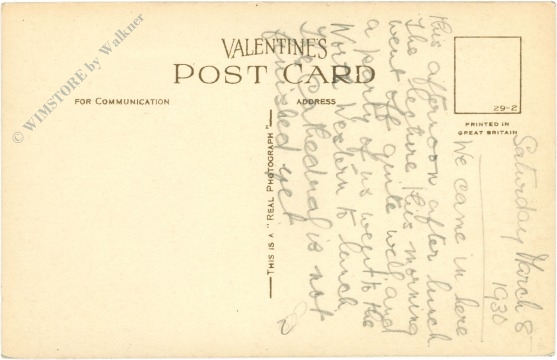 VALENTINE'S
POST CARD
FOR COMMUNICATION
ADDRESS
29-2
PRINTED IN
GREAT BRITAIN
THIS IS A "REAL PHOTOGRAPH"
Saturday March 8
1930
We came in here
this afternoon after lunch
The lecture this morning
went off quite well and
a party of us went to the
North Western to lunch
The Cathedral is not
finished yet
© WIMSTORE by Walkner